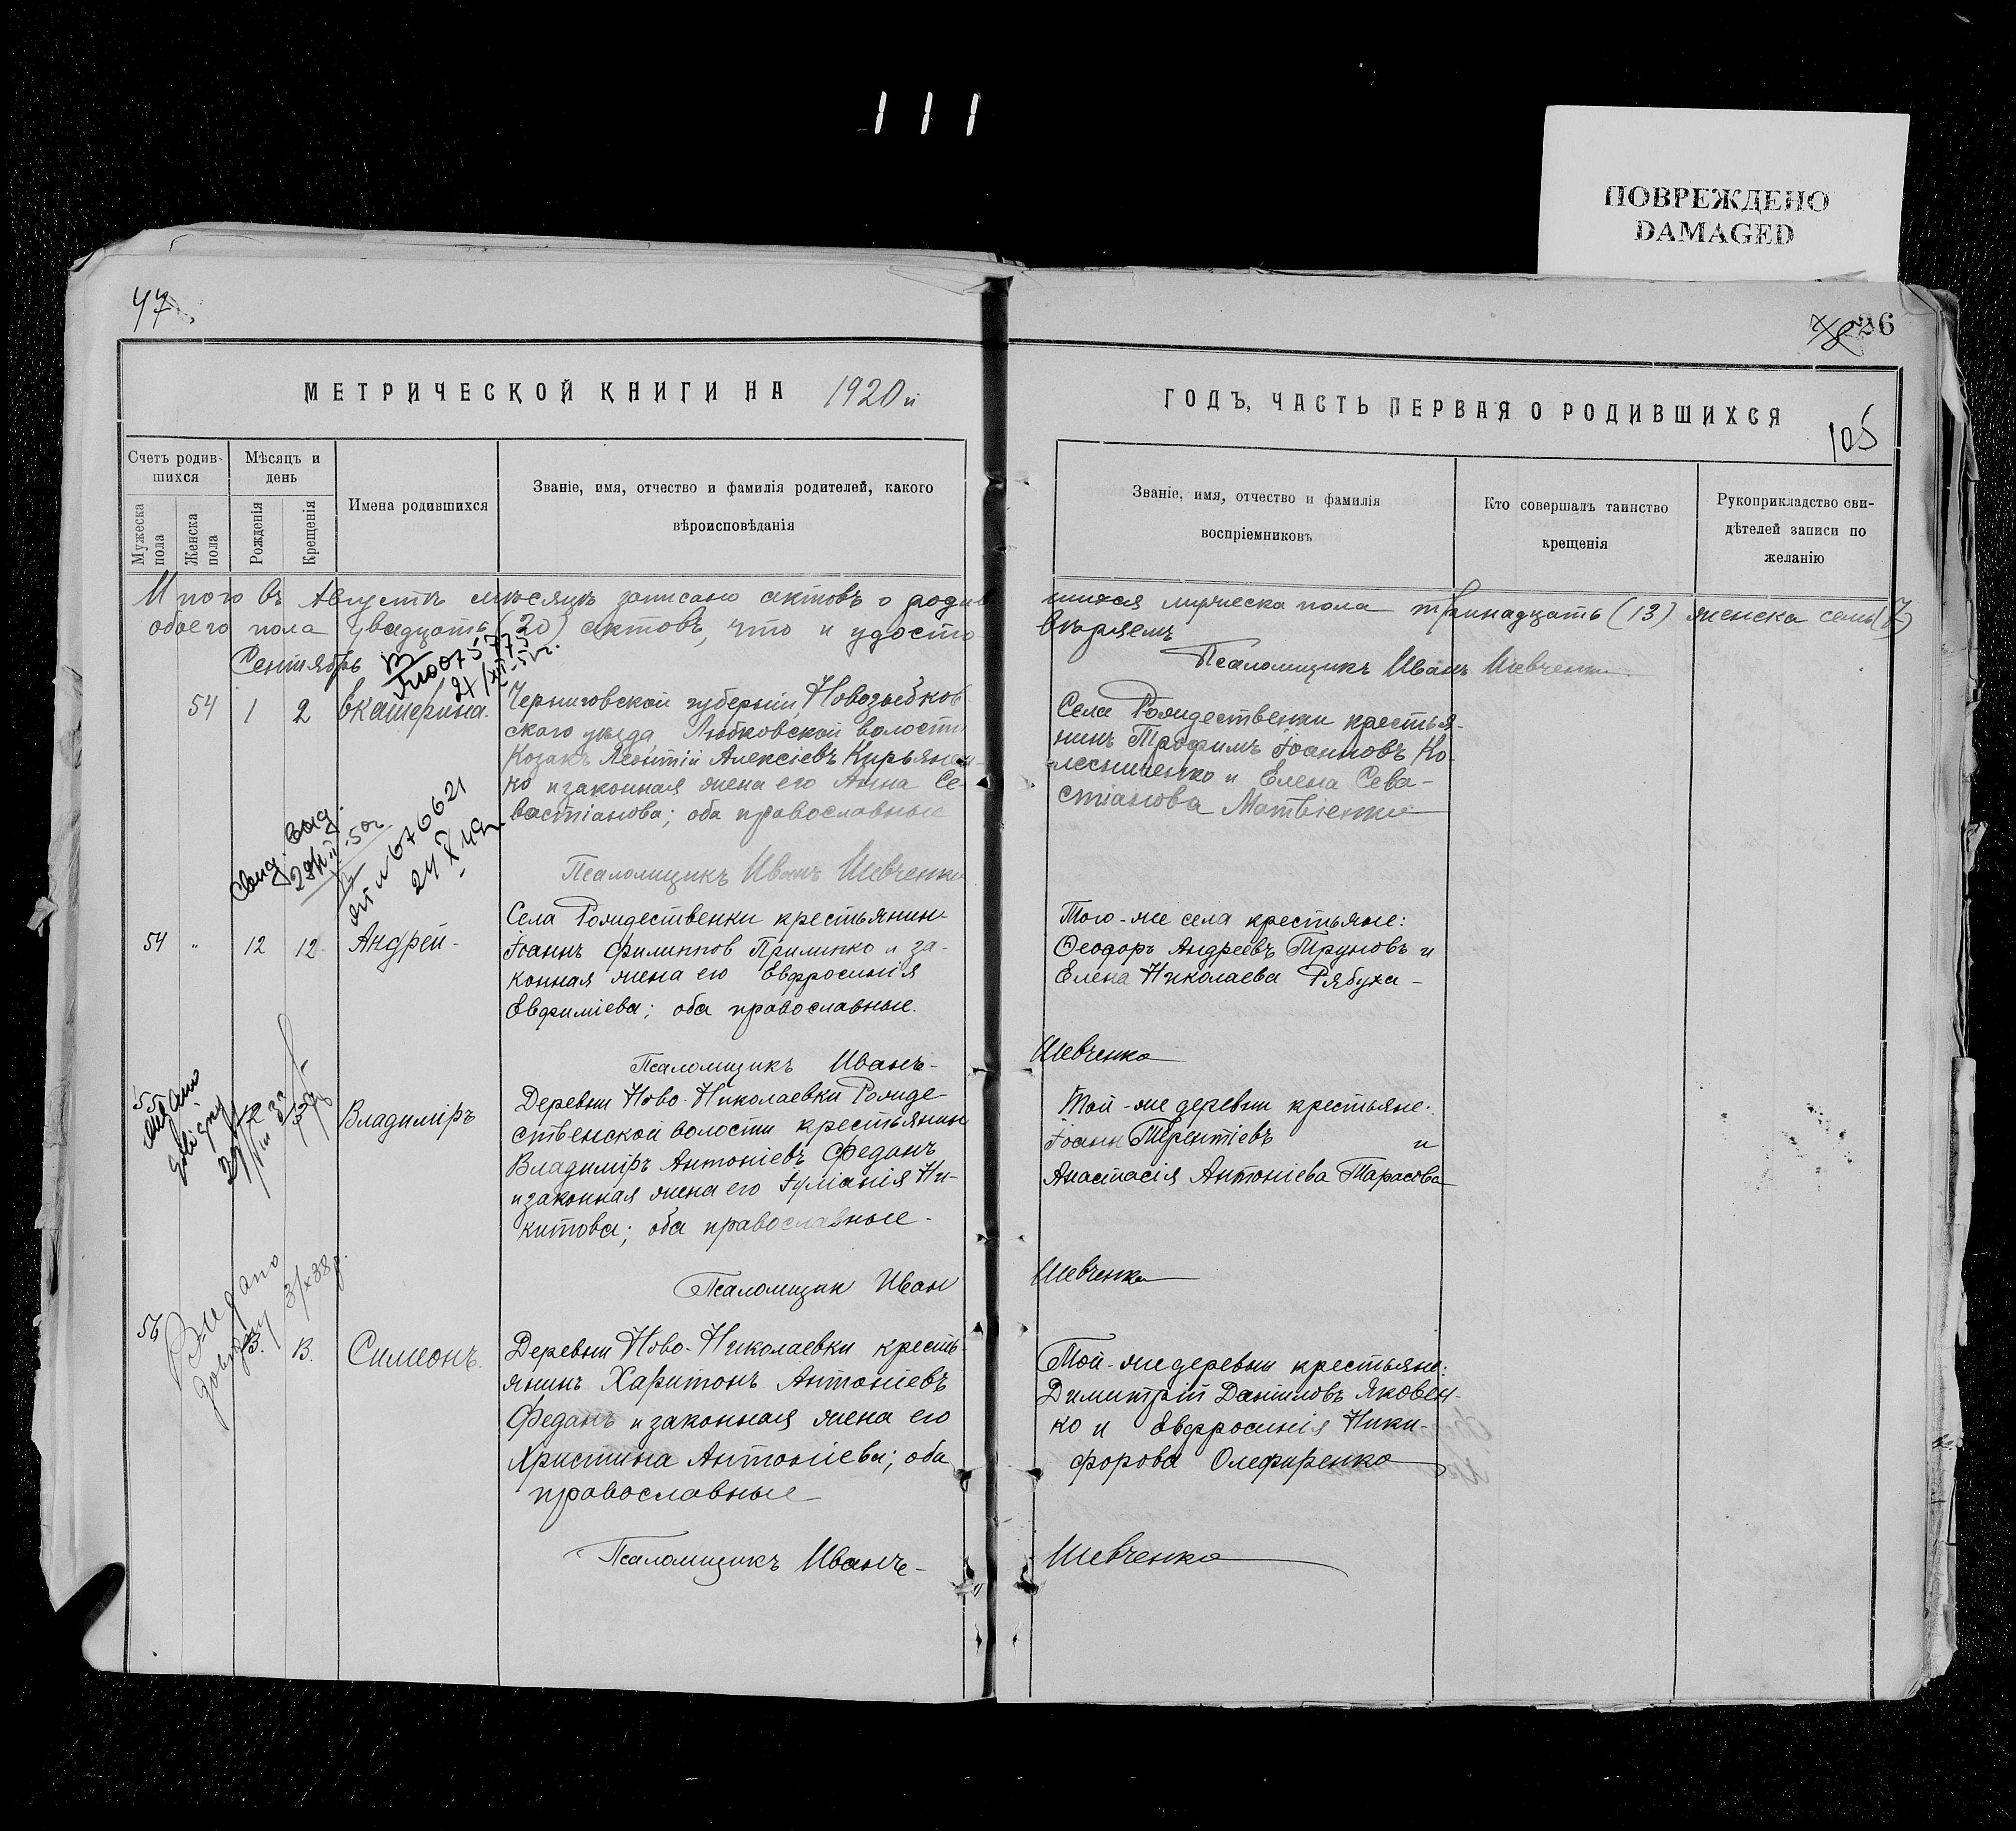 111
ПОВРЕЖДЕНО
DAMAGED
47
26
МЕТРИЧЕСКОЙ КНИГИ НА 1920 й
ГОДЪ, ЧАСТЬ ПЕРВАЯ О РОДИВШИХСЯ
105
Счетъ родив-
шихся
Мужеска пола
Женска пола
Мѣсяцъ и
день
Рожденія
Крещенія
Имена родившихся
Званіе, имя, отчество и фамилія родителей, какого
вѣроисповѣданія
Званіе, имя, отчество и фамилія
воспріемниковъ
Кто совершалъ таинство
крещенія
Рукоприкладство сви-
дѣтелей записи по
желанію
Итого въ Августѣ мѣсяцѣ записано актовъ о родив
шихся мужеска пола тринадцать (13) женска семь (7)
обоего пола двадцать (20) актовъ, что и удосто-
вѣряемъ
Псаломщикъ Иванъ Шевченко
Сентябрь
54 1 2 Екатерина.
Черниговской губерніи, Новозыбков
скаго уѣзда Лыбковской волости
Козакъ Леонтій Алексіевъ Кирьянен-
ко и законная жена его Анна Се-
вастіанова; оба православные
Села Рождественки крестья-
нинъ Трофимъ Іоанновъ Ко-
лесниченко и Елена Сева-
стіанова Матвіенко
№ 676621
24 X 49
Псаломщикъ Иванъ Шевченко
54 " 12 12 Андрей -
Села Рождественки крестьянинъ
Іоаннъ Филиппов Прилипко и за-
конная жена его Евфросинія
Евфиміева; оба православные.
Того-же села крестьяне:
Ѳеодоръ Андреевъ Труновъ и
Елена Николаева Рябуха -
Псаломщикъ Иванъ-
Шевченко
55 Владиміръ
Деревни Ново-Николаевки Рожде-
ственской волости крестьянин
Владиміръ Антоніевъ Феданъ
и законная жена его Іуліанія Ни-
китова; оба православные -
Той-же деревни крестьяне:
Іоанн Терентіевъ и
Анастасія Антоніева Тарасова
Псаломщик Иван
Шевченко
56 13. 13. Симеонъ.
Видано
довідку 3/X 38 р.
Деревни Ново-Николаевки кресть-
янинъ Харитонъ Антоніевъ
Феданъ и законная жена его
Христина Антоніева; оба
православные
Той-же деревни крестьяне:
Димитрій Даниловъ Яковен-
ко и Евфросинія Ники-
форова Олефиренко
Псаломщикъ Иванъ-
Шевченко